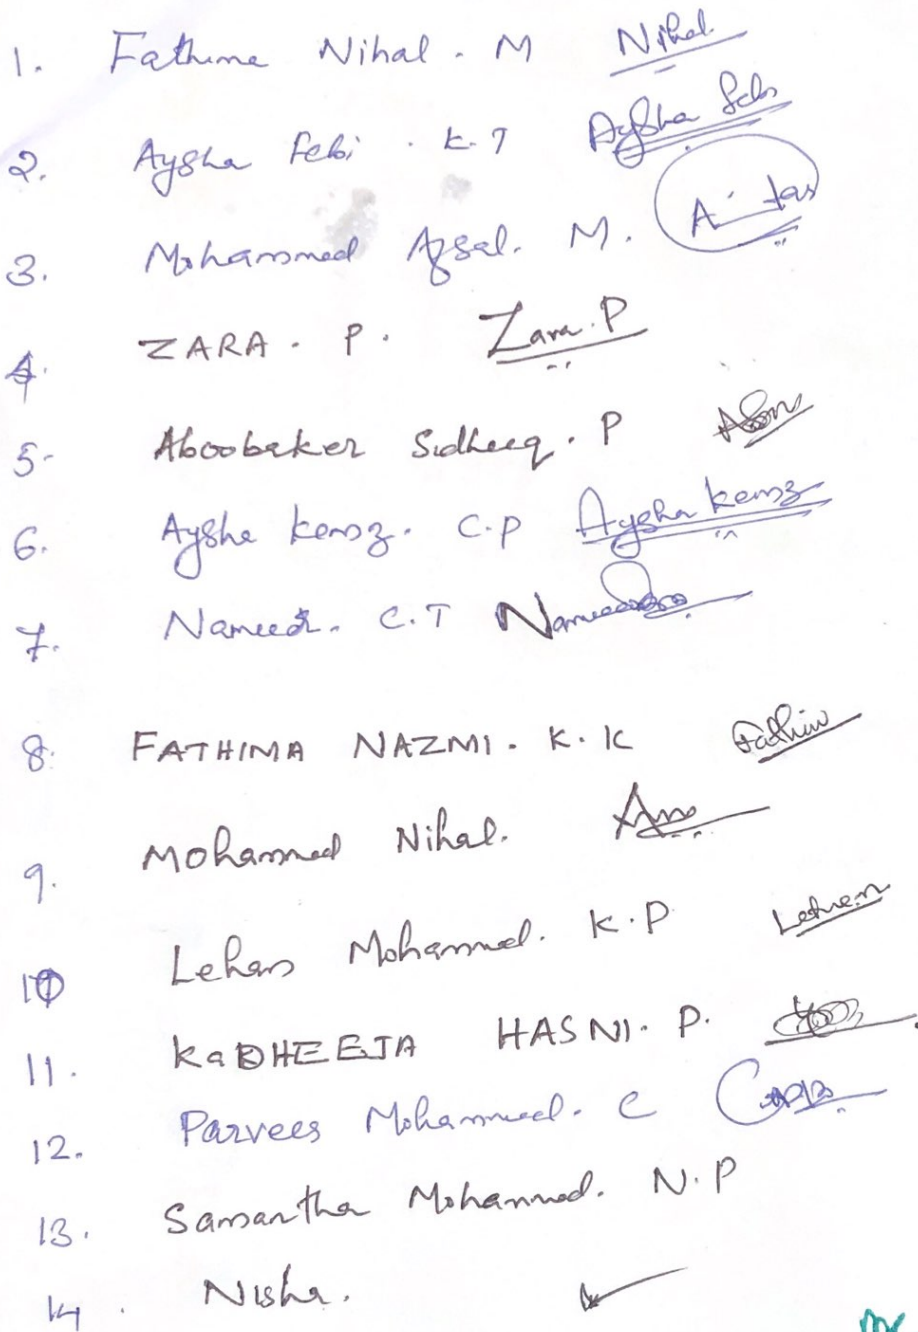 1. Fathima Nihal . M Nihal
2. Aysha Febi . K.T Aysha Febi
3. Mohammed Afsal. M.
4. ZARA . P. Zara.P
5. Aboobaker Sidheeq . P
6. Aysha kenz. C.P Aysha kenz
7. Nameer. C.T
8. FATHIMA NAZMI . K. K Fathim
9. Mohammed Nihal.
10 Lehan Mohammed. K.P
11. KaDHEEJA HASNI. P.
12. Parvees Mohammed. C
13. Samantha Mohammed. N.P
14. Nisha.